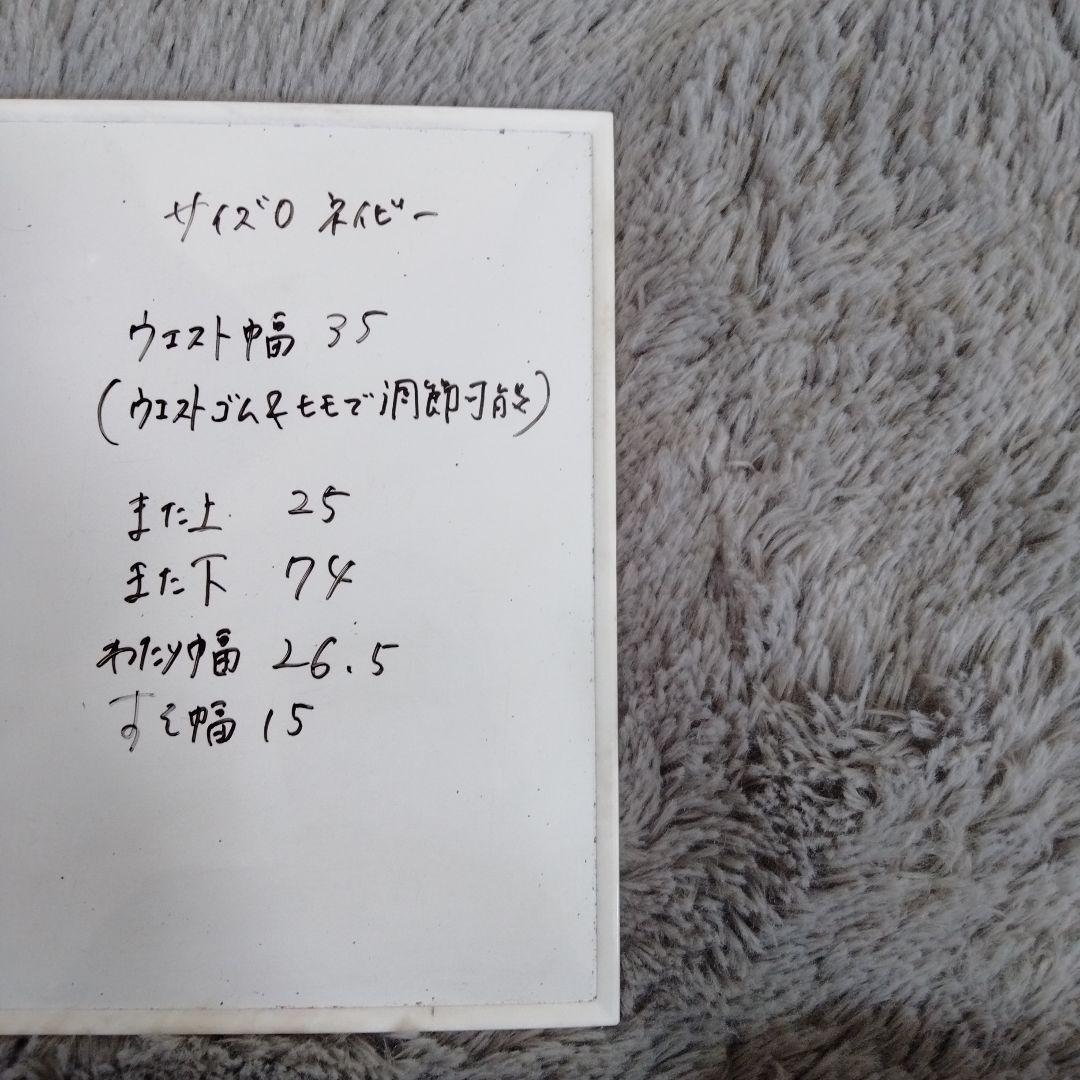 サイズ0 ネイビー
ウエスト幅 35
(ウエストゴム&ヒモで調節可能)
また上 25
また下 74
わたり幅 26.5
すそ幅 15